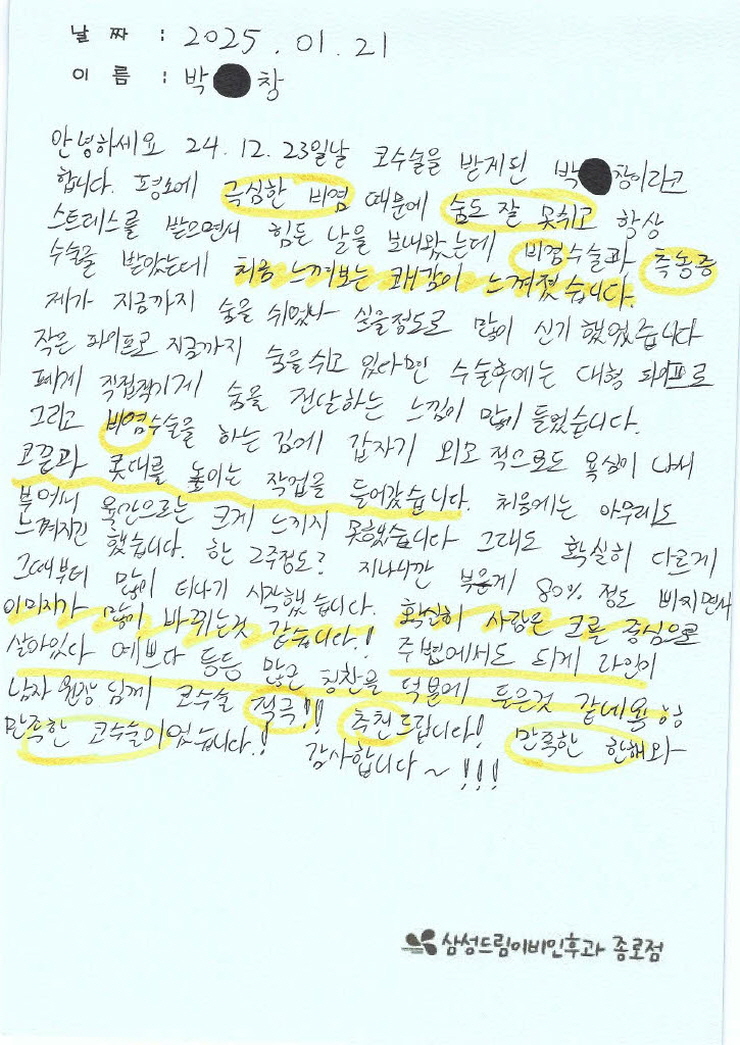 날 짜 : 2025. 01. 21
이 름 : 박 창
안녕하세요 24. 12. 23일날 코수술을 받게된 박 창이라고
합니다. 평소에 극심한 비염 때문에 숨도 잘 못쉬고 항상
스트레스를 받으면서 힘든 날을 보내왔는데 비염수술과 축농증
수술을 받았는데 처음 느껴보는 쾌감이 느껴졌습니다.
제가 지금까지 숨을 쉬었나 싶을정도로 많이 신기했었습니다
작은 파이프로 지금까지 숨을쉬고 있다면 수술후에는 대형 파이프로
폐에 직접적이게 숨을 전달하는 느낌이 많이 들었습니다.
그리고 비염수술을 하는김에 갑자기 외모적으로도 욕심이 나서
코끝과 콧대를 높이는 작업을 들어갔습니다. 처음에는 아무래도
부어서 육안으로는 크게 느끼지 못했습니다 그래도 확실히 다르게
느껴지긴 했습니다. 한 2주정도? 지나니깐 부은게 80% 정도 빠지면서
그때부터 많이 티나기 시작했습니다. 확실히 사람은 코를 중심으로
이미지가 많이 바뀌는것 같습니다.! 주변에서도 되게 라인이
살아있다 예쁘다 등등 많은 칭찬을 덕분에 듣은것 같네용 ㅎㅎ
남자 원장님께 코수술 적극!! 추천드립니다! 만족한 한해와
만족한 코수술이었습니다.! 감사합니다~!!!
삼성드림이비인후과 종로점